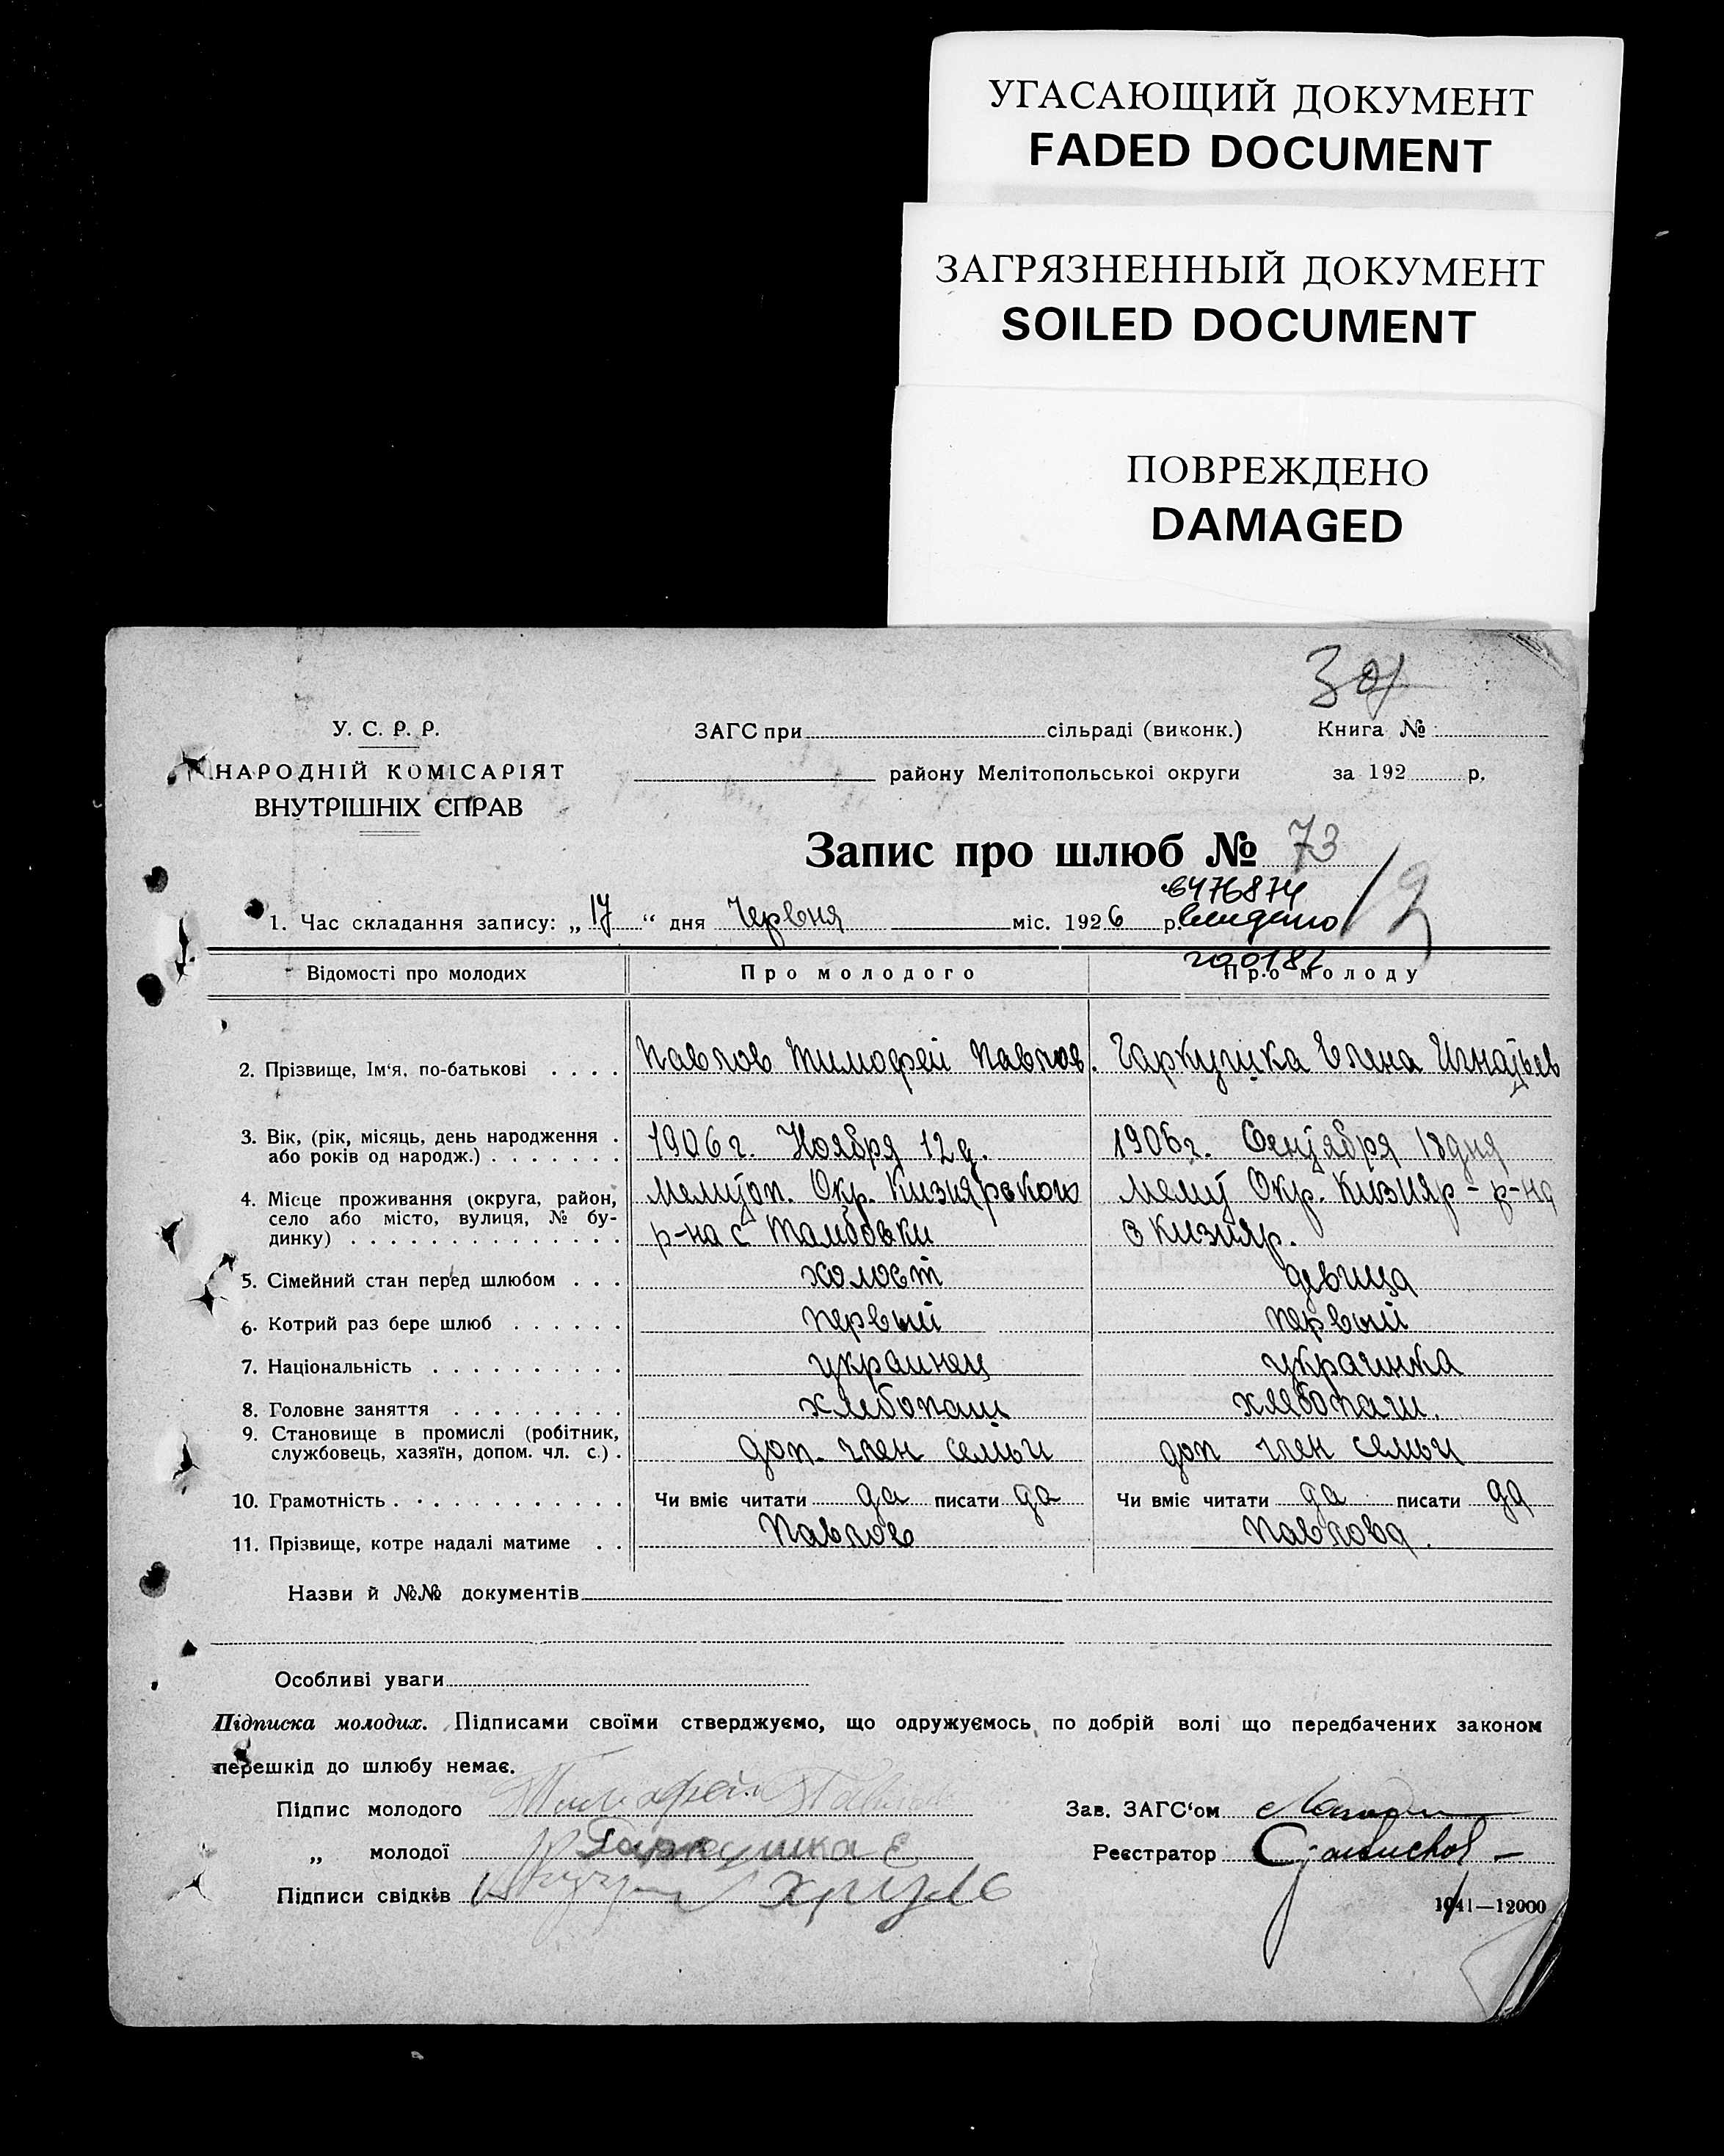 УГАСАЮЩИЙ ДОКУМЕНТ
FADED DOCUMENT
ЗАГРЯЗНЕННЫЙ ДОКУМЕНТ
SOILED DOCUMENT
ПОВРЕЖДЕНО
DAMAGED
У. С. Р. Р.
НАРОДНІЙ КОМІСАРІЯТ
ВНУТРІШНІХ СПРАВ
ЗАГС при сільраді (виконк.)
району Мелітопольської округи
Книга №
за 192 р.
Запис про шлюб № 73
6476874
1. Час складання запису: „17“ дня Червня міс. 1926 р.
Відомості про молодих Про молодого Про молоду
2. Прізвище, Ім'я, по-батькові . . . . Павлов Тимофей Павлов. Гаркушка Елена Игнатьев
3. Вік, (рік, місяць, день народження . або років од народж.) . . . . . . . 1906 г. Ноября 12 д. 1906 г. Сентября 18 дня
4. Місце проживання (округа, район, Мелитоп. Окр. Кизиярского Мелит Окр. Кизияр-р-на
село або місто, вулиця, № бу- р-на с Тамбовки с Кизияр.
динку) . . . . . . . . . . . . . .
5. Сімейний стан перед шлюбом . . . холост девица
6. Котрий раз бере шлюб . . . . . . первый первый
7. Національність . . . . . . . . . . украинец украинка
8. Головне заняття . . . . . . . . . хлебопаш хлебопаш.
9. Становище в промислі (робітник,
службовець, хазяїн, допом. чл. с.) . доп. член семьи доп член семьи
10. Грамотність . . . . . . . . . . . Чи вміє читати да писати да Чи вміє читати да писати да
11. Прізвище, котре надалі матиме . . Павлов Павлова.
Назви й №№ документів
Особливі уваги
Підписка молодих. Підписами своїми стверджуємо, що одружуємось по добрій волі що передбачених законом
перешкід до шлюбу немає.
Підпис молодого Тимофей Павлов Зав. ЗАГС'ом
„ молодої Гаркушка Е Реєстратор
Підписи свідків
1941—12000